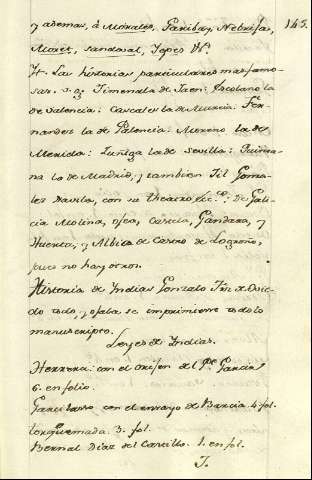 145.
y ademas, à Morales, Garibay, Nebrija,
Moret, Sandoval, Yepes &c.
It. Las historias particulares mas famo-
sas. v.g. Ximena la de Jaen: Escolano la
de Valencia: Cascales la de Murcia: Fer-
nandez la de Palencia: Moreno la de
Merida: Zuñiga la de Sevilla: Quinta-
na la de Madrid, y tambien Gil Gonza-
lez Davila, con su theatro &c. De Gali-
cia Molina, Ojea, Garcia, Gandara, y
Huerta, y Albia de Castro de Logroño,
pues no hay otros.
Historia de Indias Gonzalo Frz. de Ovie-
do todo, y si se imprimiere todo lo
manuscripto.
Leyes de Indias.
Herrera: con el Origen del Pe. Garcia
6. en folio.
Garcilaso con el ensayo de Barcia. 4. fol.
Torquemada. 3. fol.
Bernal Diaz del Castillo. 1. en fol.